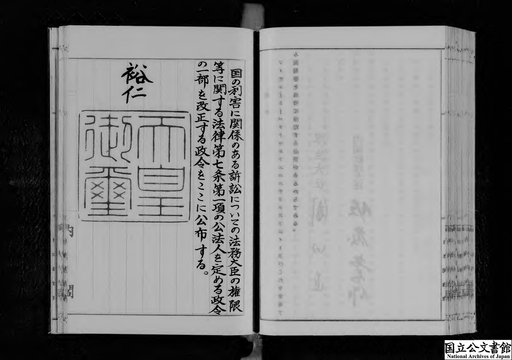 国の利害に関係のある訴訟についての法務大臣の権限
等に関する法律第七条第一項の公法人を定める政令
の一部を改正する政令をここに公布する。
裕仁
天皇
御璽
内閣
国立公文書館
National Archives of Japan